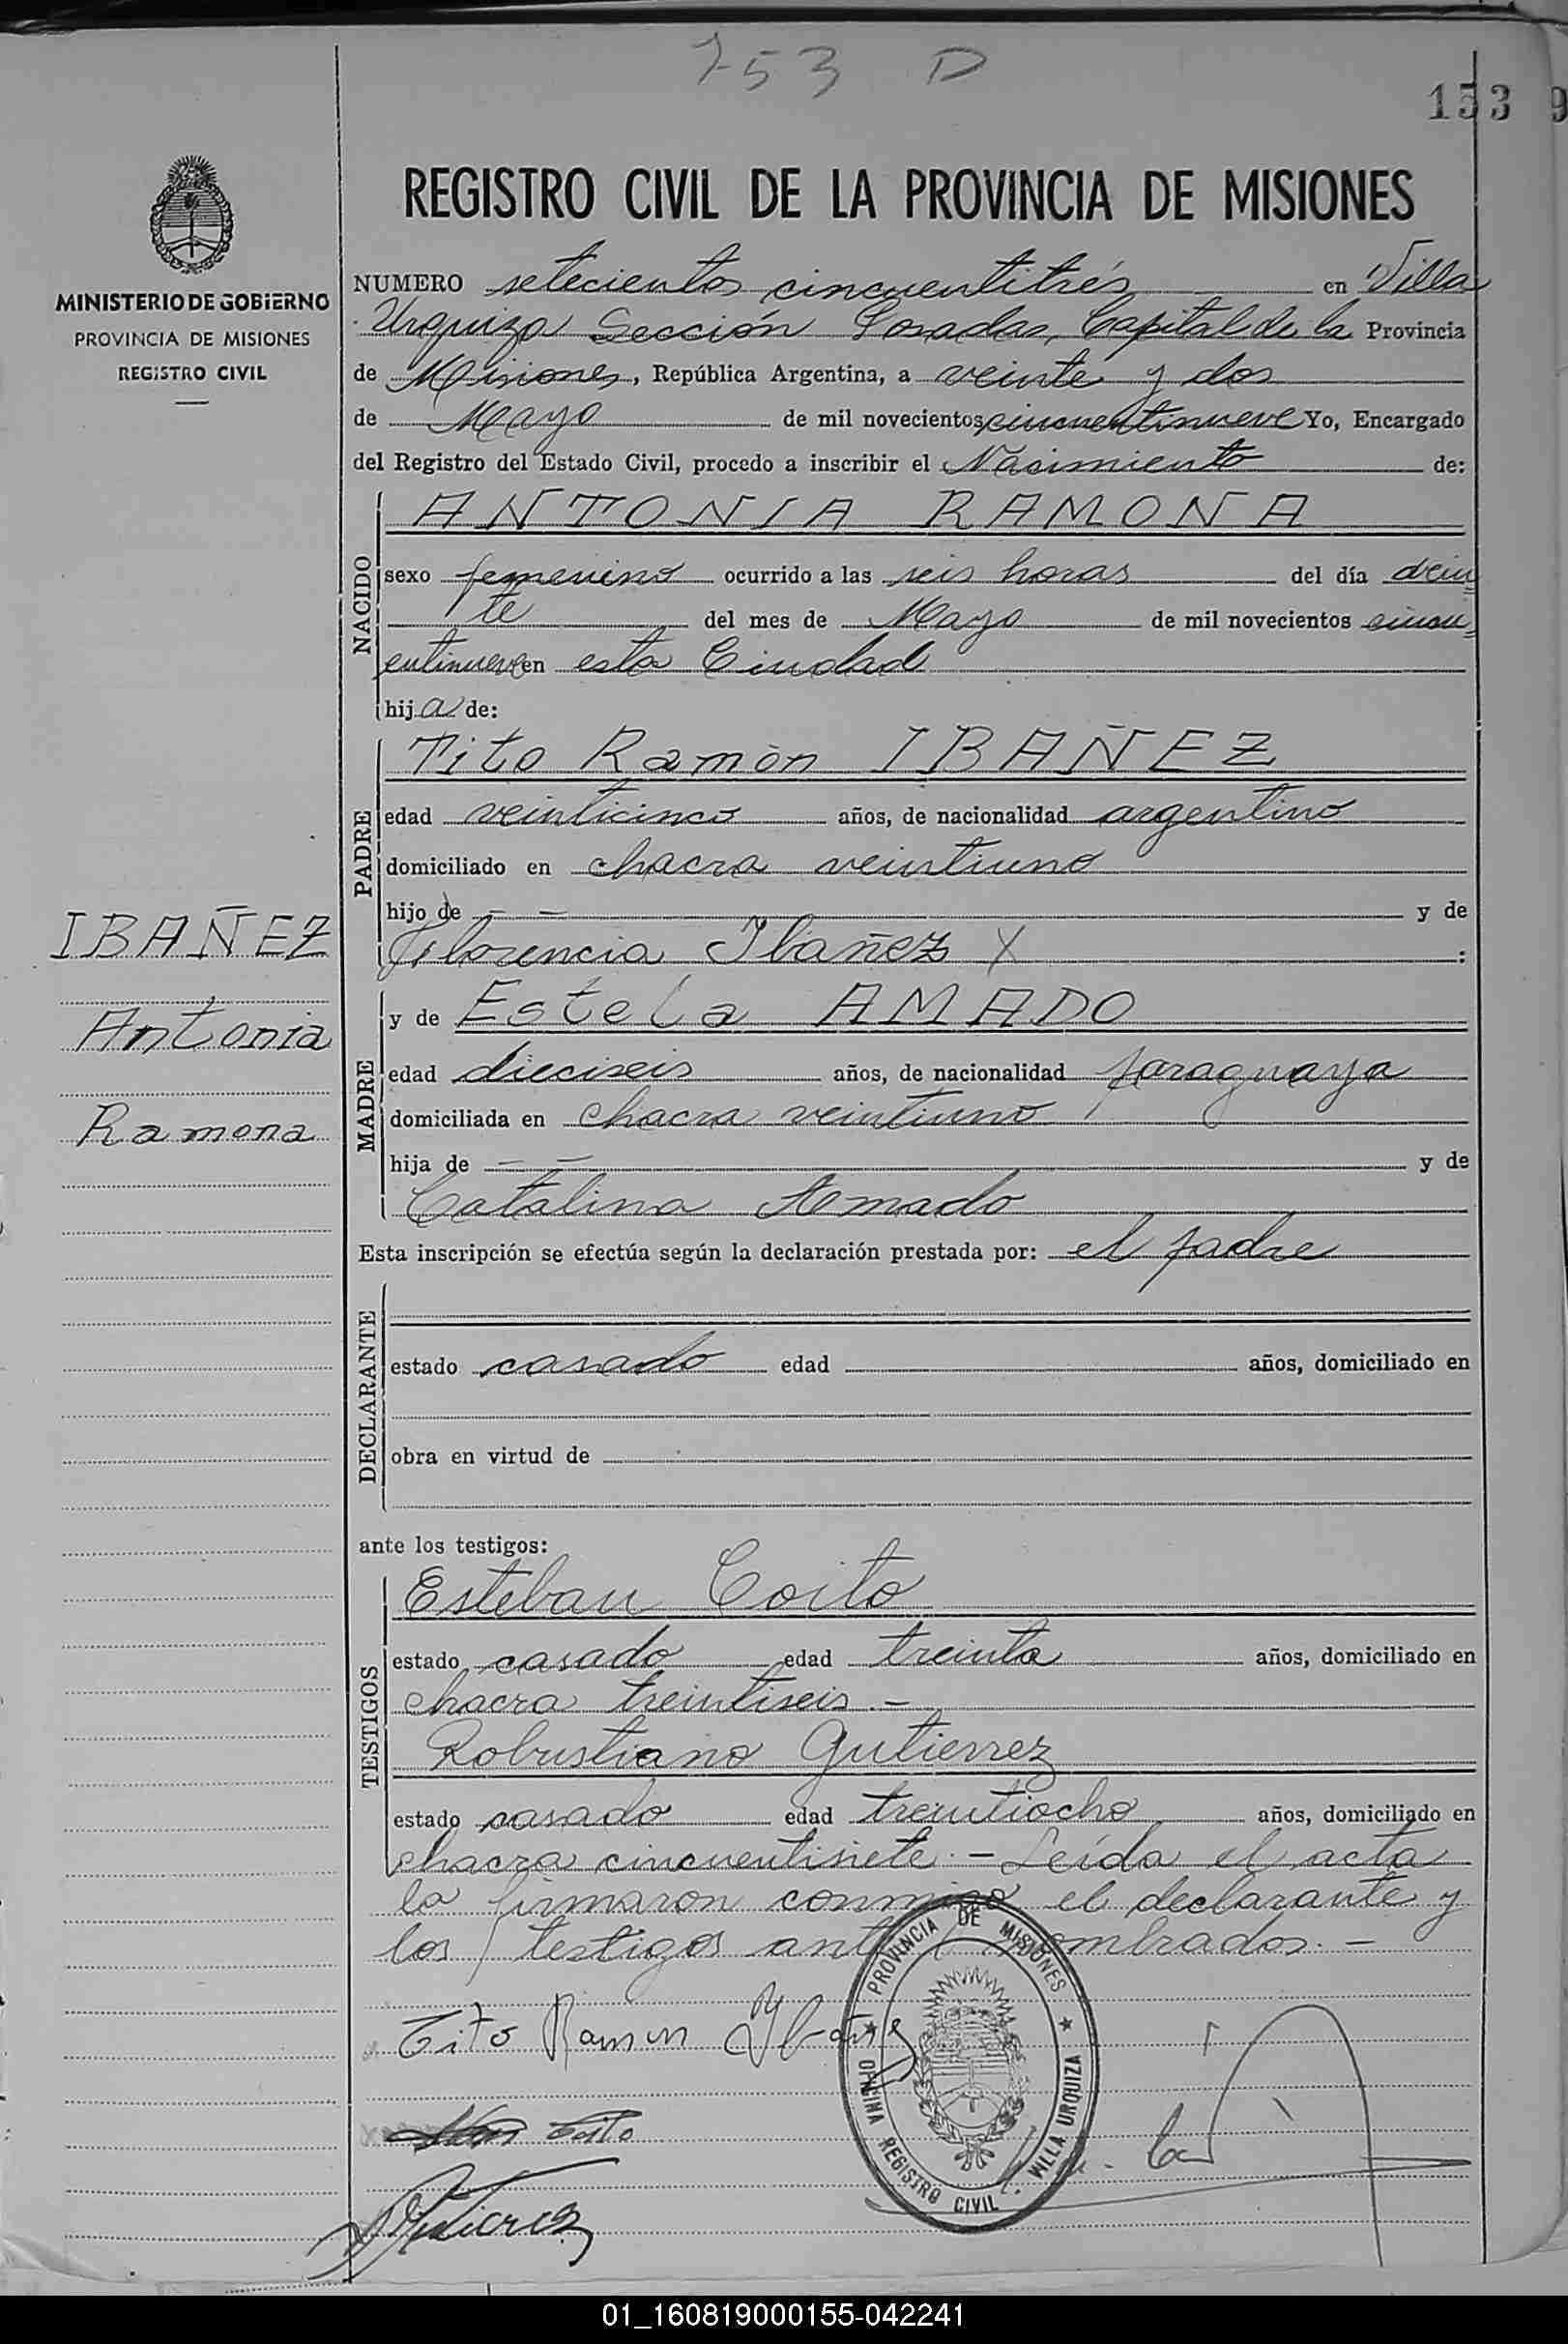 753 D
153 9
REGISTRO CIVIL DE LA PROVINCIA DE MISIONES
MINISTERIO DE GOBIERNO
PROVINCIA DE MISIONES
REGISTRO CIVIL
NUMERO setecientos cincuentitrés en Villa
Urquiza Sección Posadas, Capital de la Provincia
de Misiones, República Argentina, a veinte y dos
de Mayo de mil novecientos cincuentinueve Yo, Encargado
del Registro del Estado Civil, procedo a inscribir el Nacimiento de:
NACIDO
ANTONIA RAMONA
sexo femenino ocurrido a las seis horas del día vein
te del mes de Mayo de mil novecientos cincu
entinueve en esta Ciudad
hija de:
PADRE
Tito Ramón IBAÑEZ
edad veinticinco años, de nacionalidad argentino
domiciliado en chacra veintiuno
hijo de — — y de
Florencia Ibañez X :
IBAÑEZ
Antonia
Ramona
MADRE
y de Estela AMADO
edad dieciseis años, de nacionalidad paraguaya
domiciliada en chacra veintiuno
hija de — — y de
Catalina Amado
Esta inscripción se efectúa según la declaración prestada por: el padre
DECLARANTE
estado casado edad años, domiciliado en
obra en virtud de
ante los testigos:
TESTIGOS
Esteban Coito
estado casado edad treinta años, domiciliado en
chacra treintiseis.—
Robustiano Gutierrez
estado casado edad treintiocho años, domiciliado en
chacra cincuentisiete.— Leída el acta
la firmaron conmigo el declarante y
los testigos nombrados.—
Tito Ramon Ybañez
Coito
Gutierrez
PROVINCIA DE MISIONES
OFICINA REGISTRO CIVIL
VILLA URQUIZA
01_160819000155-042241